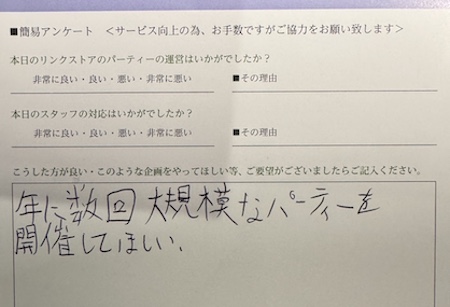 ■簡易アンケート <サービス向上の為、お手数ですがご協力をお願い致します>
本日のリンクストアのパーティーの運営はいかがでしたか?
非常に良い・良い・悪い・非常に悪い ■その理由
本日のスタッフの対応はいかがでしたか?
非常に良い・良い・悪い・非常に悪い ■その理由
こうした方が良い・このような企画をやってほしい等、ご要望がございましたらご記入ください。
年に数回 大規模なパーティーを
開催してほしい、